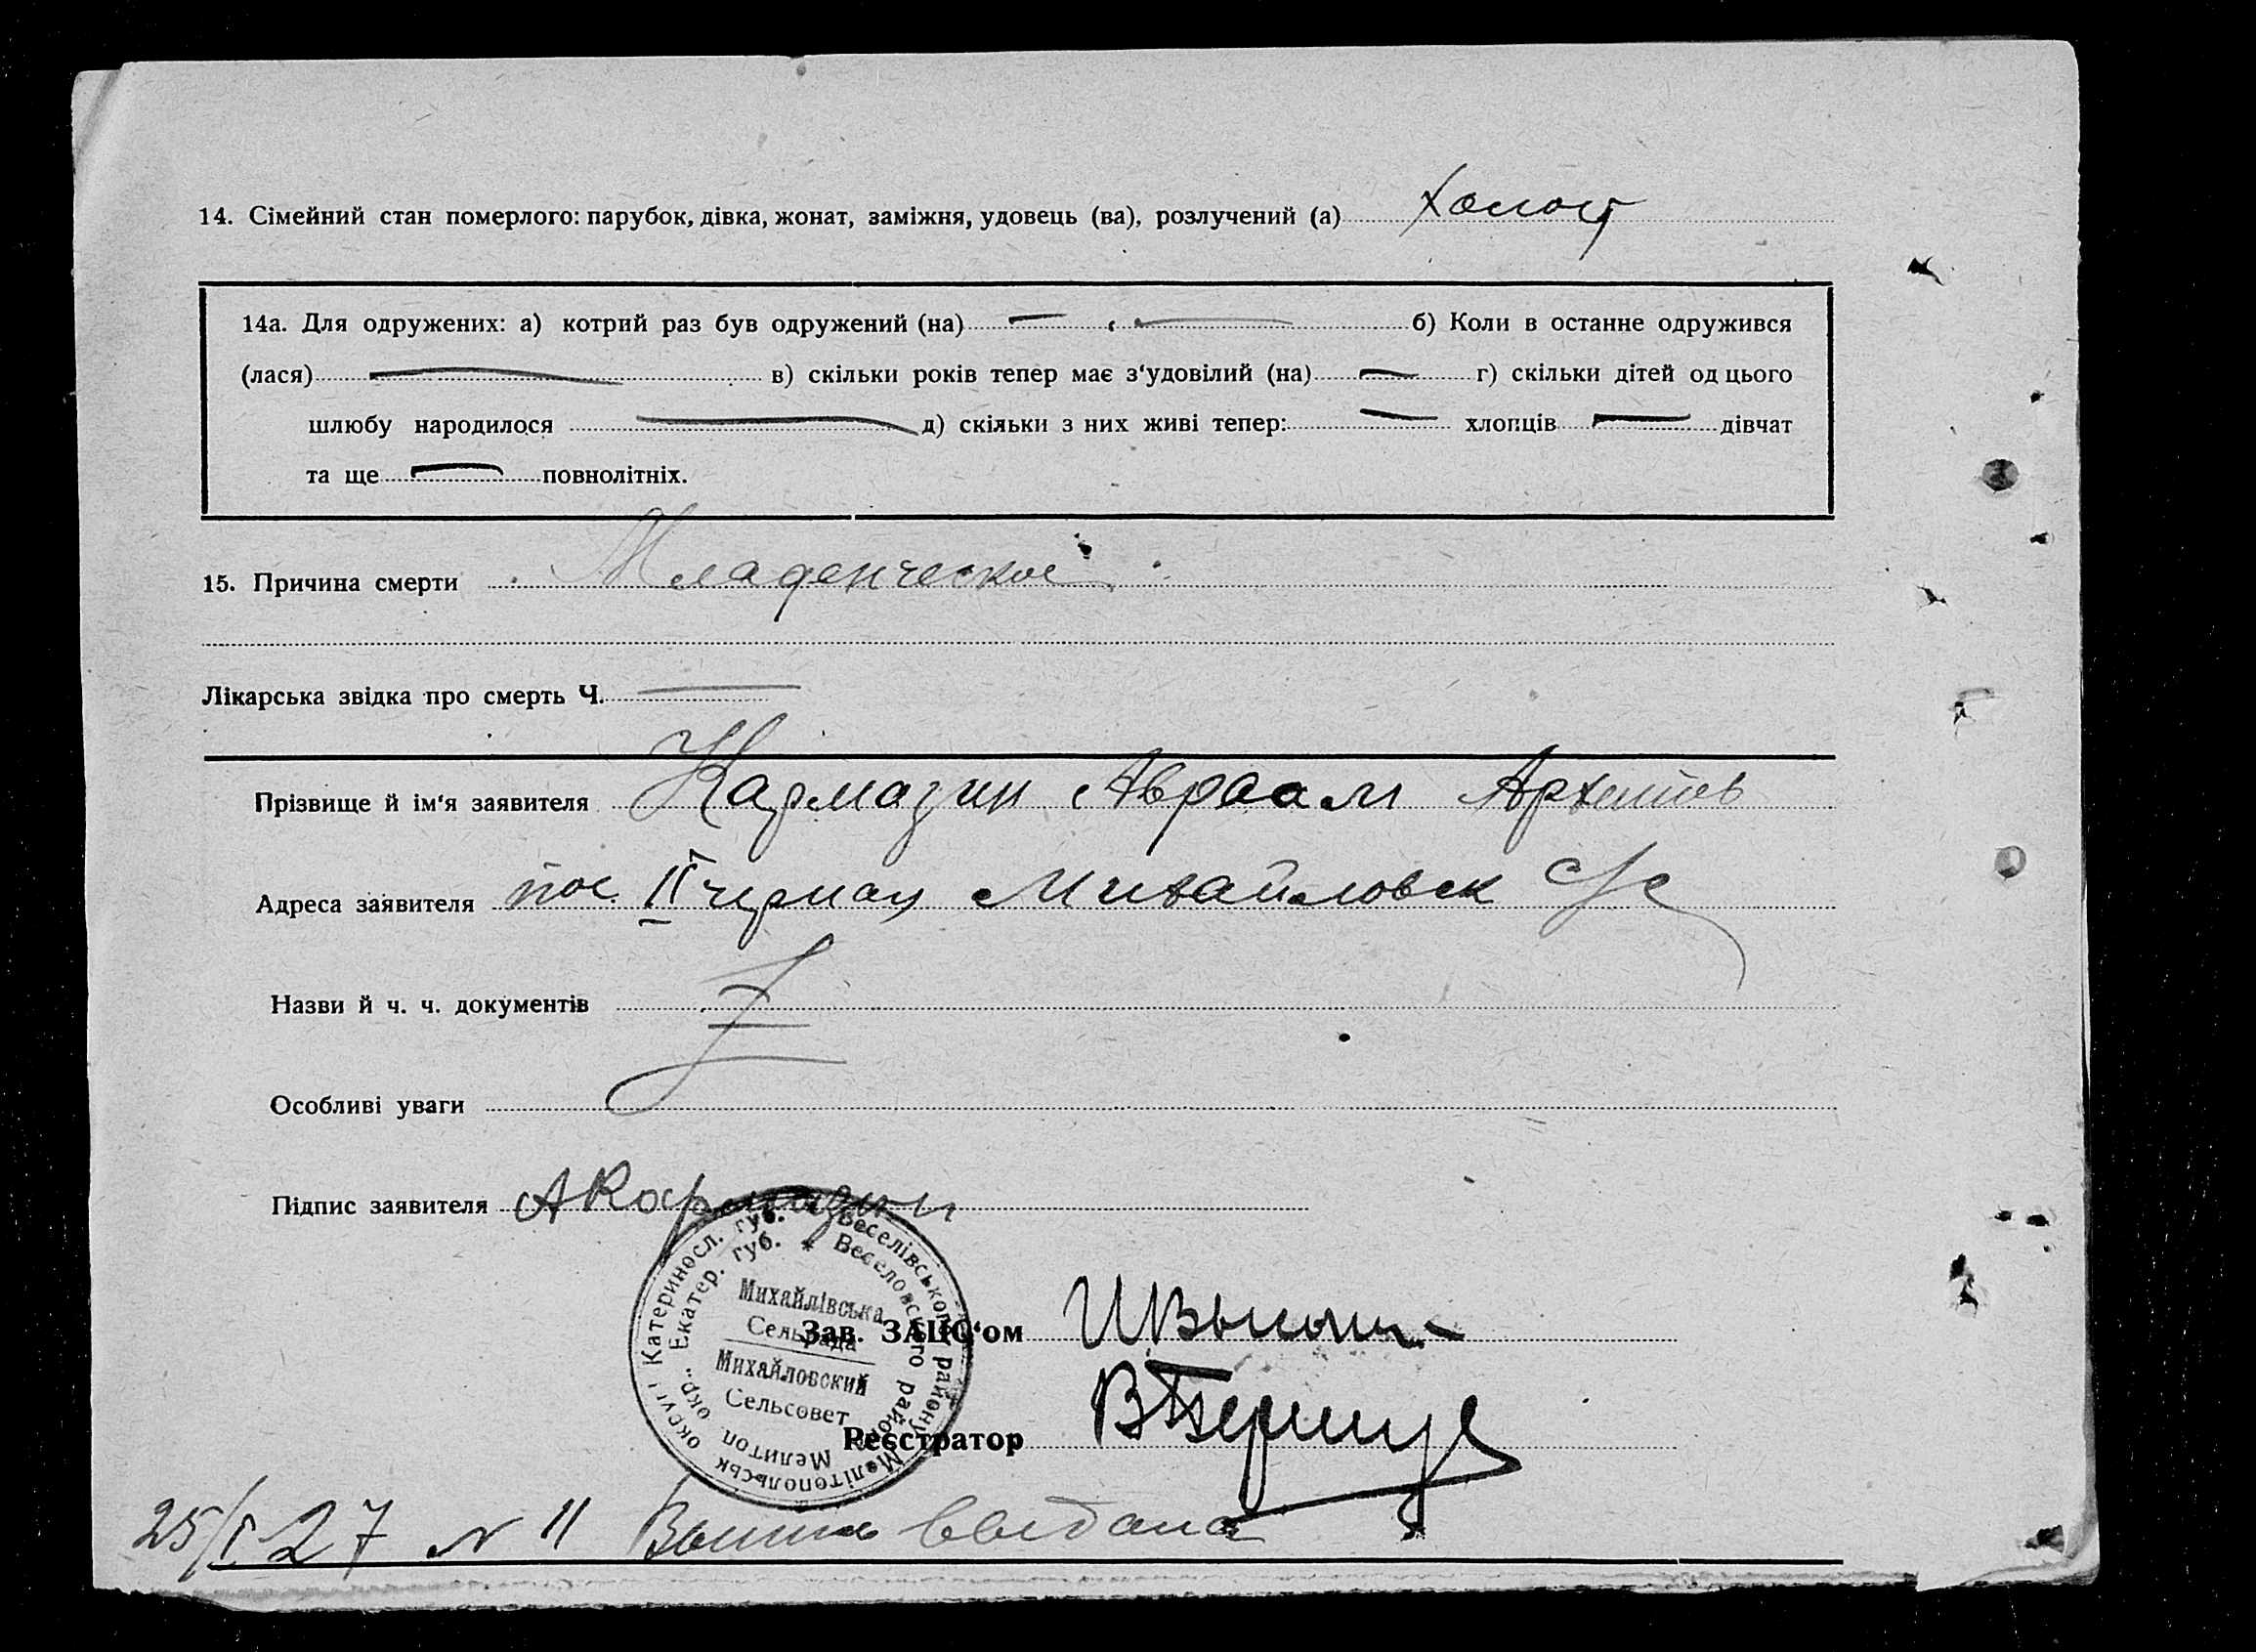 14. Сімейний стан померлого: парубок, дівка, жонат, заміжня, удовець (ва), розлучений (а) холост
14а. Для одружених: а) котрий раз був одружений (на) — б) Коли в останне одружився
(лася) — в) скільки років тепер має з‘удовілий (на) — г) скільки дітей од цього
шлюбу народилося — д) скільки з них живі тепер: — хлопців — дівчат
та ще — повнолітніх.
15. Причина смерти Младенческое
Лікарська звідка про смерть Ч. —
Прізвище й ім‘я заявителя Кармазин Авраам
Адреса заявителя пос. II Михайловск с/с
Назви й ч. ч. документів
Особливі уваги
Підпис заявителя АКармазин
Катериносл. губ. Веселівського району Мелітопольськ округи
Екатер. губ. * Веселовского района Мелитоп. окр.
Михайлівська
Сельрада
Михайловский
Сельсовет
Зав. ЗАЦС‘ом
Реєстратор
25/I 27 N 11 выдана